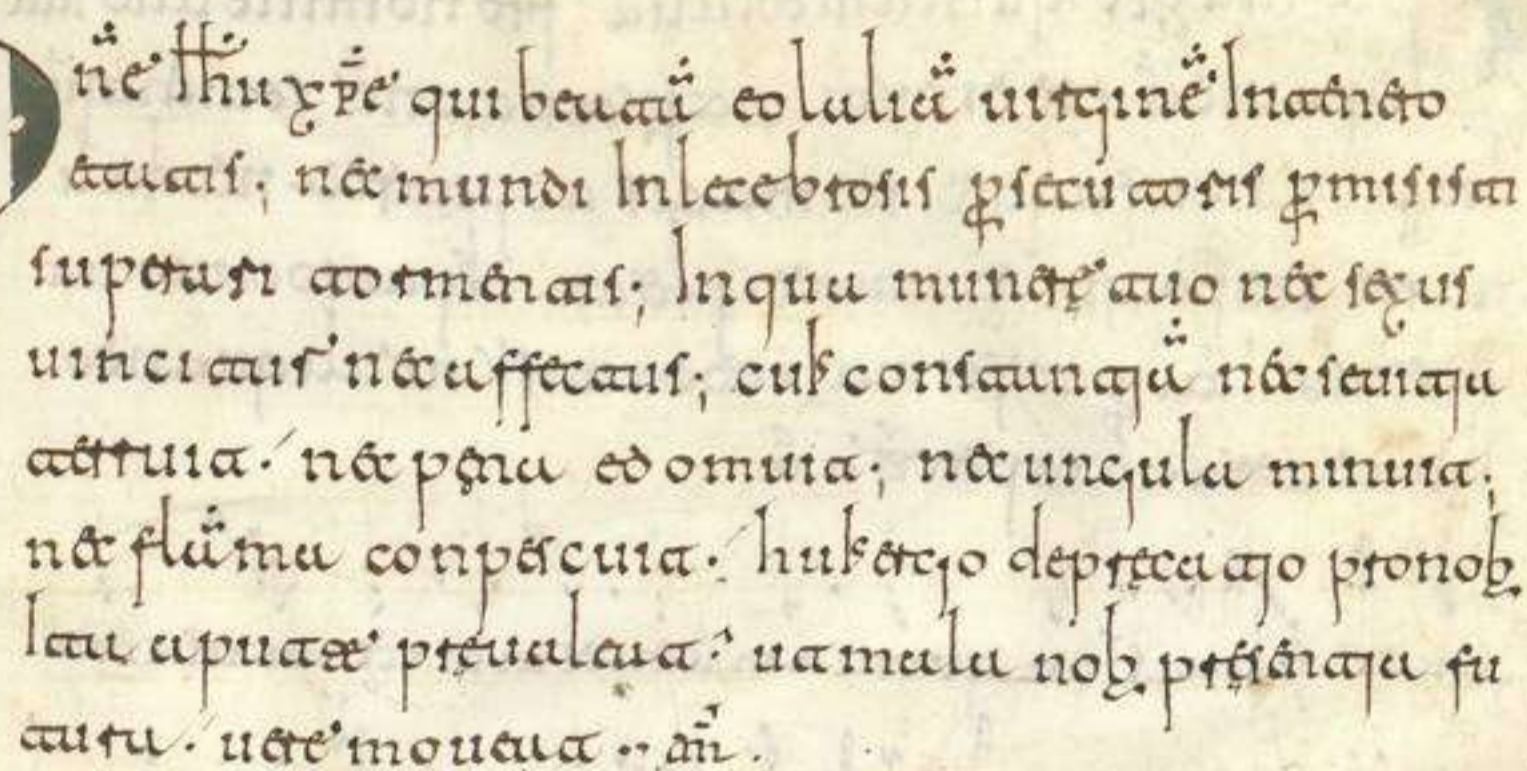 Dn̄e Ihū xp̄e qui beatā eolaliā uirginē In tenero
etatis; nec mundi Inlecebrosis ꝑsecutoris ꝑmisisti
superari tormentis; In qua munere tuo nec sexus
uincitur nec affectus; cuiꝰ constantiā nec seuitia
terruit · nec pęna edomuit; nec ungula minuit;
nec flāma conpescuit · huiꝰ ergo depręcatio pro nob
Ita aput te pręualeat · ut mala nob pręsentia fu
tura · uere moueat ·· am̄ .